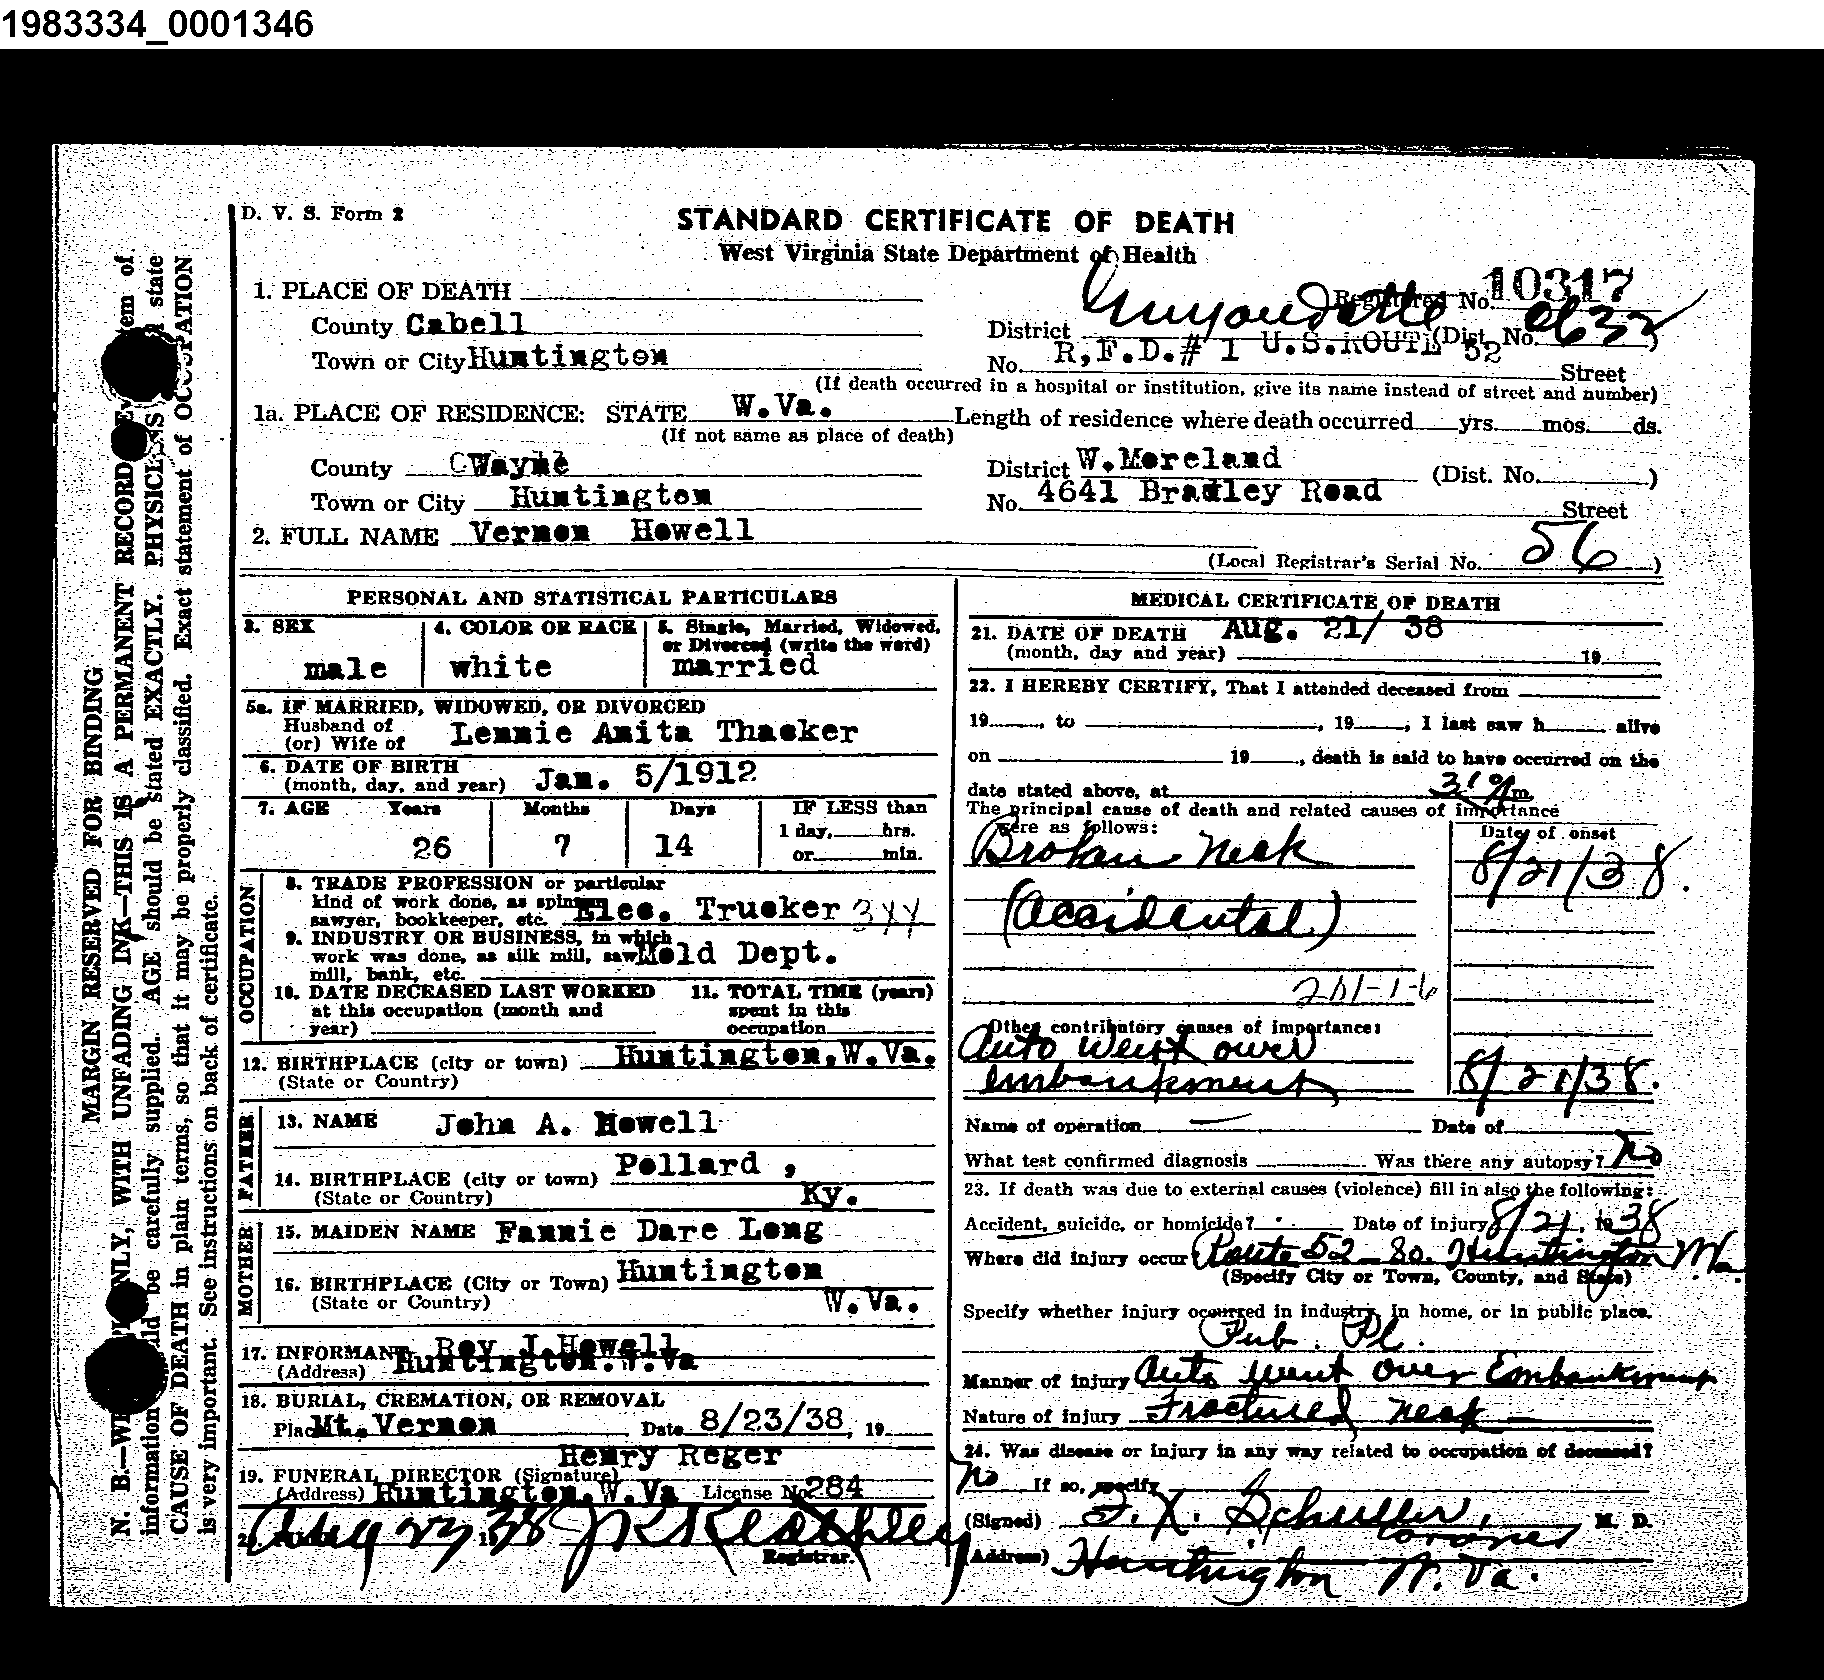 1983334_0001346
D. V. S. Form 2
STANDARD CERTIFICATE OF DEATH
West Virginia State Department of Health
1. PLACE OF DEATH
Registered No. 10317
County Cabell
District Guyandotte (Dist. No. 0632)
Town or City Huntington
No. R.F.D.# 1 U.S.ROUTE 52 Street
(If death occurred in a hospital or institution, give its name instead of street and number)
1a. PLACE OF RESIDENCE: STATE W.Va. Length of residence where death occurred yrs. mos. ds.
(If not same as place of death)
County CWayne
District W.Moreland (Dist. No. )
Town or City Huntington
No. 4641 Bradley Road Street
2. FULL NAME Vernon Howell
(Local Registrar's Serial No. 56 )
PERSONAL AND STATISTICAL PARTICULARS
3. SEX male
4. COLOR OR RACE white
5. Single, Married, Widowed, or Divorced (write the word) married
5a. IF MARRIED, WIDOWED, OR DIVORCED
Husband of
(or) Wife of Lennie Anita Thacker
6. DATE OF BIRTH
(month, day, and year) Jan. 5/1912
7. AGE Years Months Days IF LESS than
1 day, hrs.
26 7 14 or min.
OCCUPATION
8. TRADE PROFESSION or particular
kind of work done, as spinner,
sawyer, bookkeeper, etc. Elec. Trucker
9. INDUSTRY OR BUSINESS, in which
work was done, as silk mill, saw Mold Dept.
mill, bank, etc.
10. DATE DECEASED LAST WORKED
at this occupation (month and
year)
11. TOTAL TIME (years)
spent in this
occupation
12. BIRTHPLACE (city or town) Huntington,W.Va.
(State or Country)
FATHER
13. NAME John A. Howell
14. BIRTHPLACE (city or town) Pollard ,
(State or Country) Ky.
MOTHER
15. MAIDEN NAME Fannie Dare Long
16. BIRTHPLACE (City or Town) Huntington
(State or Country) W.Va.
17. INFORMANT Roy J.Howell
(Address) Huntington.W.Va
18. BURIAL, CREMATION, OR REMOVAL
Place Mt. Vernon Date 8/23/38, 19
Henry Reger
19. FUNERAL DIRECTOR (Signature)
(Address) Huntington.W.Va License No 284
Aug 23 38 J R Keathley
Registrar.
MEDICAL CERTIFICATE OF DEATH
21. DATE OF DEATH Aug. 21/ 38
(month, day and year) 19
22. I HEREBY CERTIFY, That I attended deceased from
19 , to , 19 , I last saw h alive
on 19 , death is said to have occurred on the
date stated above, at m.
The principal cause of death and related causes of importance
were as follows:
Date of onset
Broken Neck 8/21/38.
(Accidental)
Other contributory causes of importance:
Auto Went over
embankment 8/21/38.
Name of operation — Date of
What test confirmed diagnosis Was there any autopsy? No
23. If death was due to external causes (violence) fill in also the following:
Accident, suicide, or homicide? Date of injury 8/21, 19 38
Where did injury occur? Route 52 - So. Huntington W.Va.
(Specify City or Town, County, and State)
Specify whether injury occurred in industry, in home, or in public place.
Pub. Pl.
Manner of injury Auto went over Embankment
Nature of injury Fractured neck
24. Was disease or injury in any way related to occupation of deceased?
No If so, specify
(Signed) Coroner M. D.
(Address) Huntington W. Va.
MARGIN RESERVED FOR BINDING